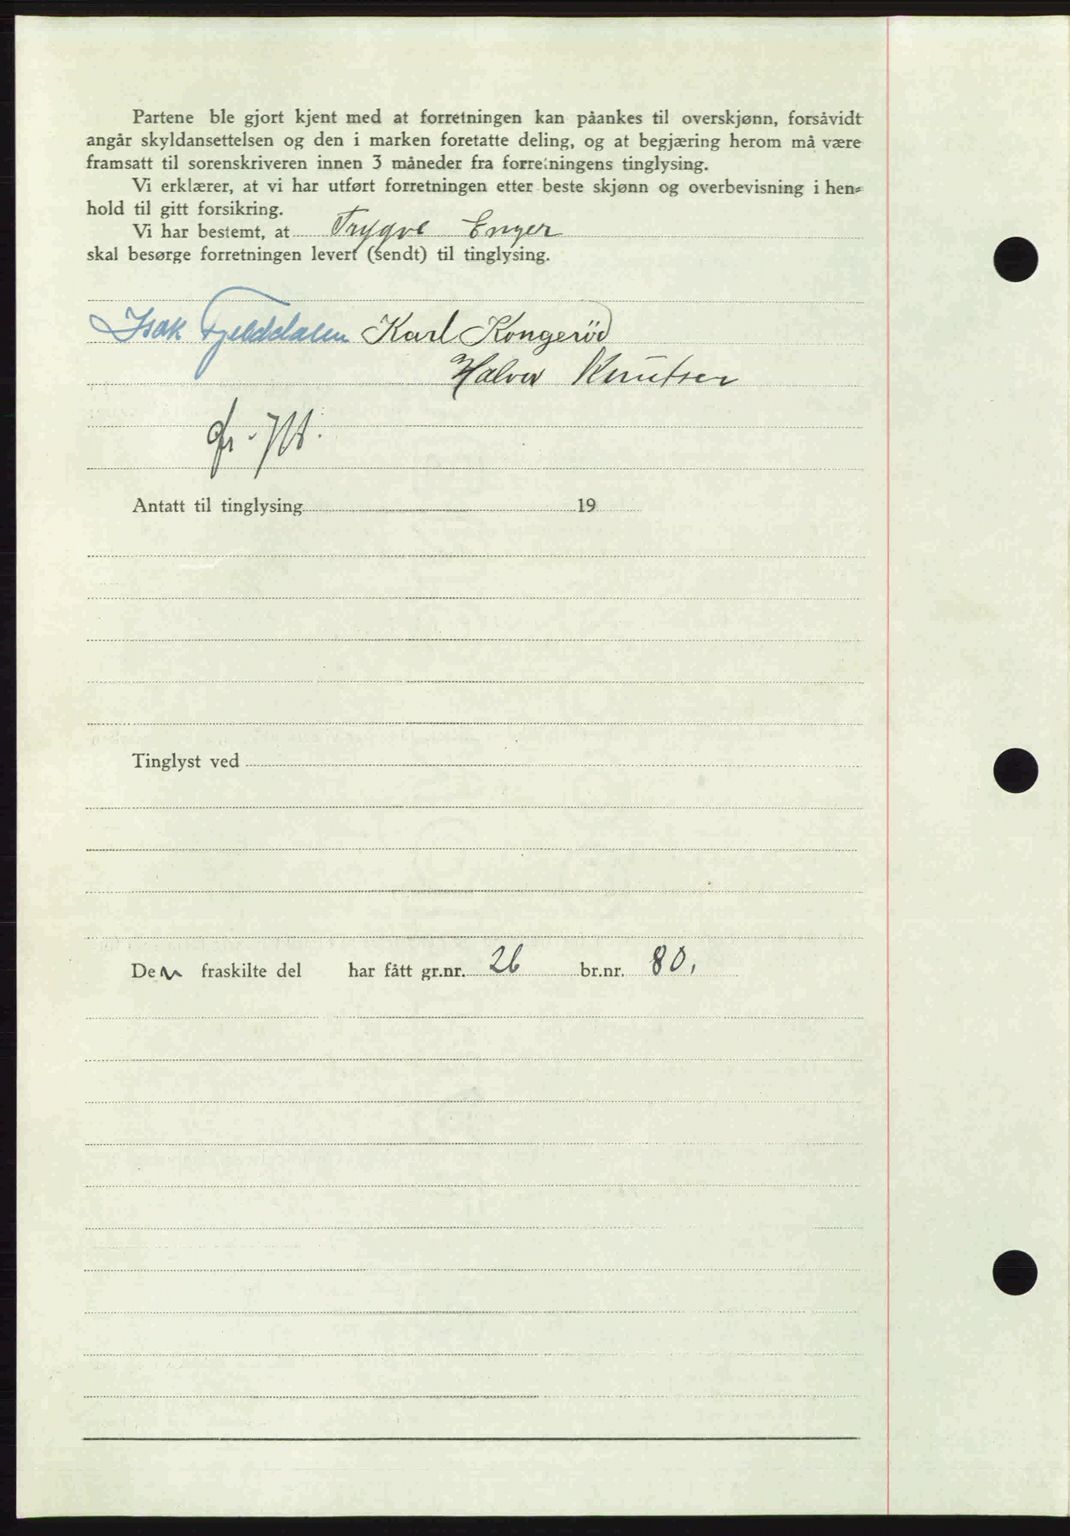 Partene ble gjort kjent med at forretningen kan påankes til overskjønn, forsåvidt
angår skyldansettelsen og den i marken foretatte deling, og at begjæring herom må være
framsatt til sorenskriveren innen 3 måneder fra forretningens tinglysing.
Vi erklærer, at vi har utført forretningen etter beste skjønn og overbevisning i hen-
hold til gitt forsikring.
Vi har bestemt, at Trygve Enger
skal besørge forretningen levert (sendt) til tinglysing.
Isak Fjelddalen Karl Kongerød
Halvor Knutsen
Antatt til tinglysing 19
Tinglyst ved
Den fraskilte del har fått gr.nr. 26 br.nr. 80.